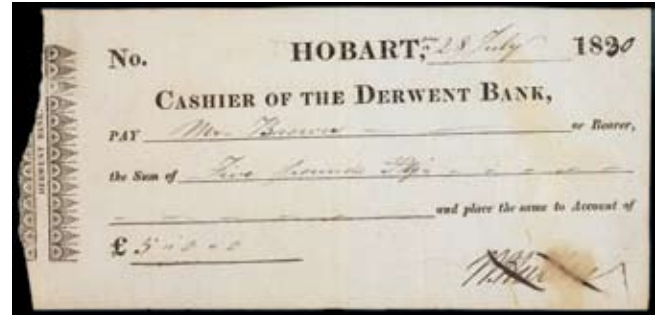 No. HOBART, 28 July 1830
CASHIER OF THE DERWENT BANK,
PAY Mr. Brown or Bearer,
the Sum of Five pounds Stg
and place the same to Account of
£ 5 - 0 - 0
DERWENT BANK.